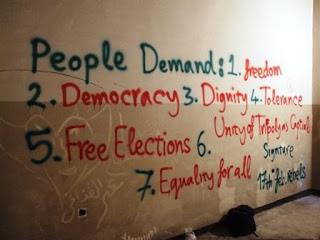 People Demand: 1. freedom
2. Democracy 3. Dignity 4. Tolerance
5. Free Elections 6. Unity of Tripoly as Capital
7. Equality for all
Signature
17th feb. rebels